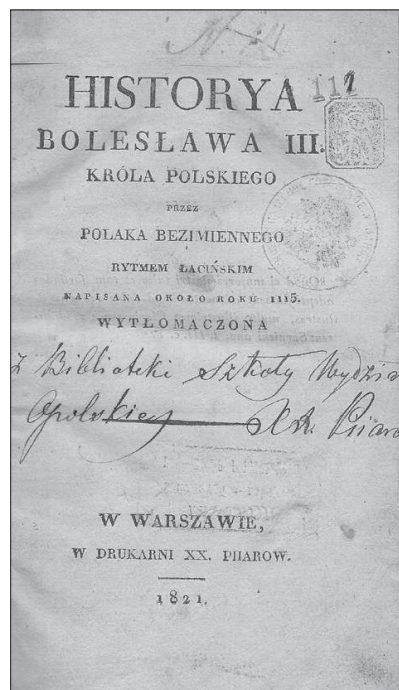 111
HISTORYA
BOLESŁAWA III.
KRÓLA POLSKIEGO
PRZEZ
POLAKA BEZIMIENNEGO
RYTMEM ŁACIŃSKIM
NAPISANA OKOŁO ROKU 1115.
WYTŁOMACZONA
z Biblioteki Szkoły Wydzia
Opolskiey XX. Piiaro
W WARSZAWIE,
W DRUKARNI XX. PIIAROW.
1821.